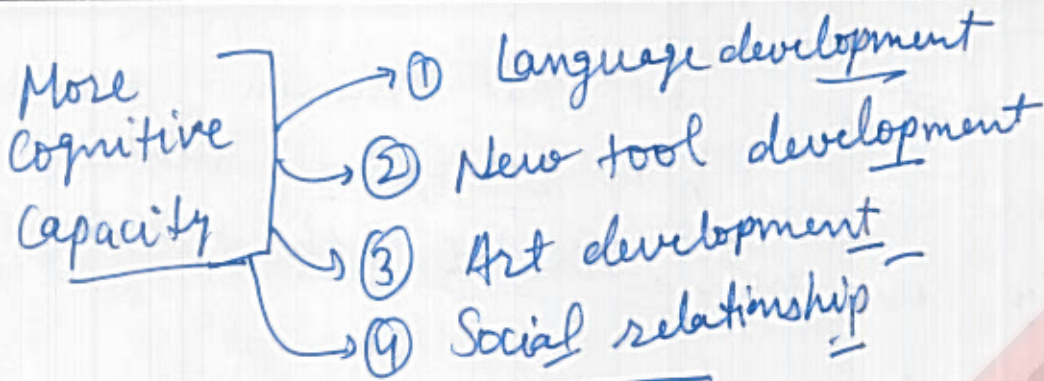 More
Cognitive
Capacity
① Language development
② New tool development
③ Art development
④ Social relationship